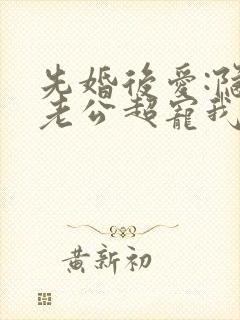 先婚後愛:
老公超寵我
黃新初